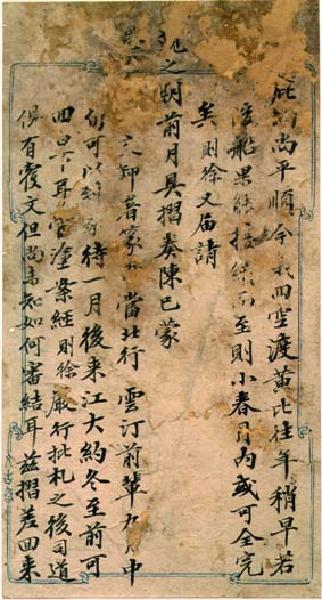 庇尚平順今回空渡黃比往年稍早若
後船果能接續而至則小春月內或可全完
矣則徐又届請
期前月具摺奏陳已蒙
允卸當北行雲汀前輩月中
旬可以到待一月後來江大約冬至前可
回耳塗案經則徐嚴行批札之後司道
俱有覆文但尚未知如何審結耳茲摺差回來
之